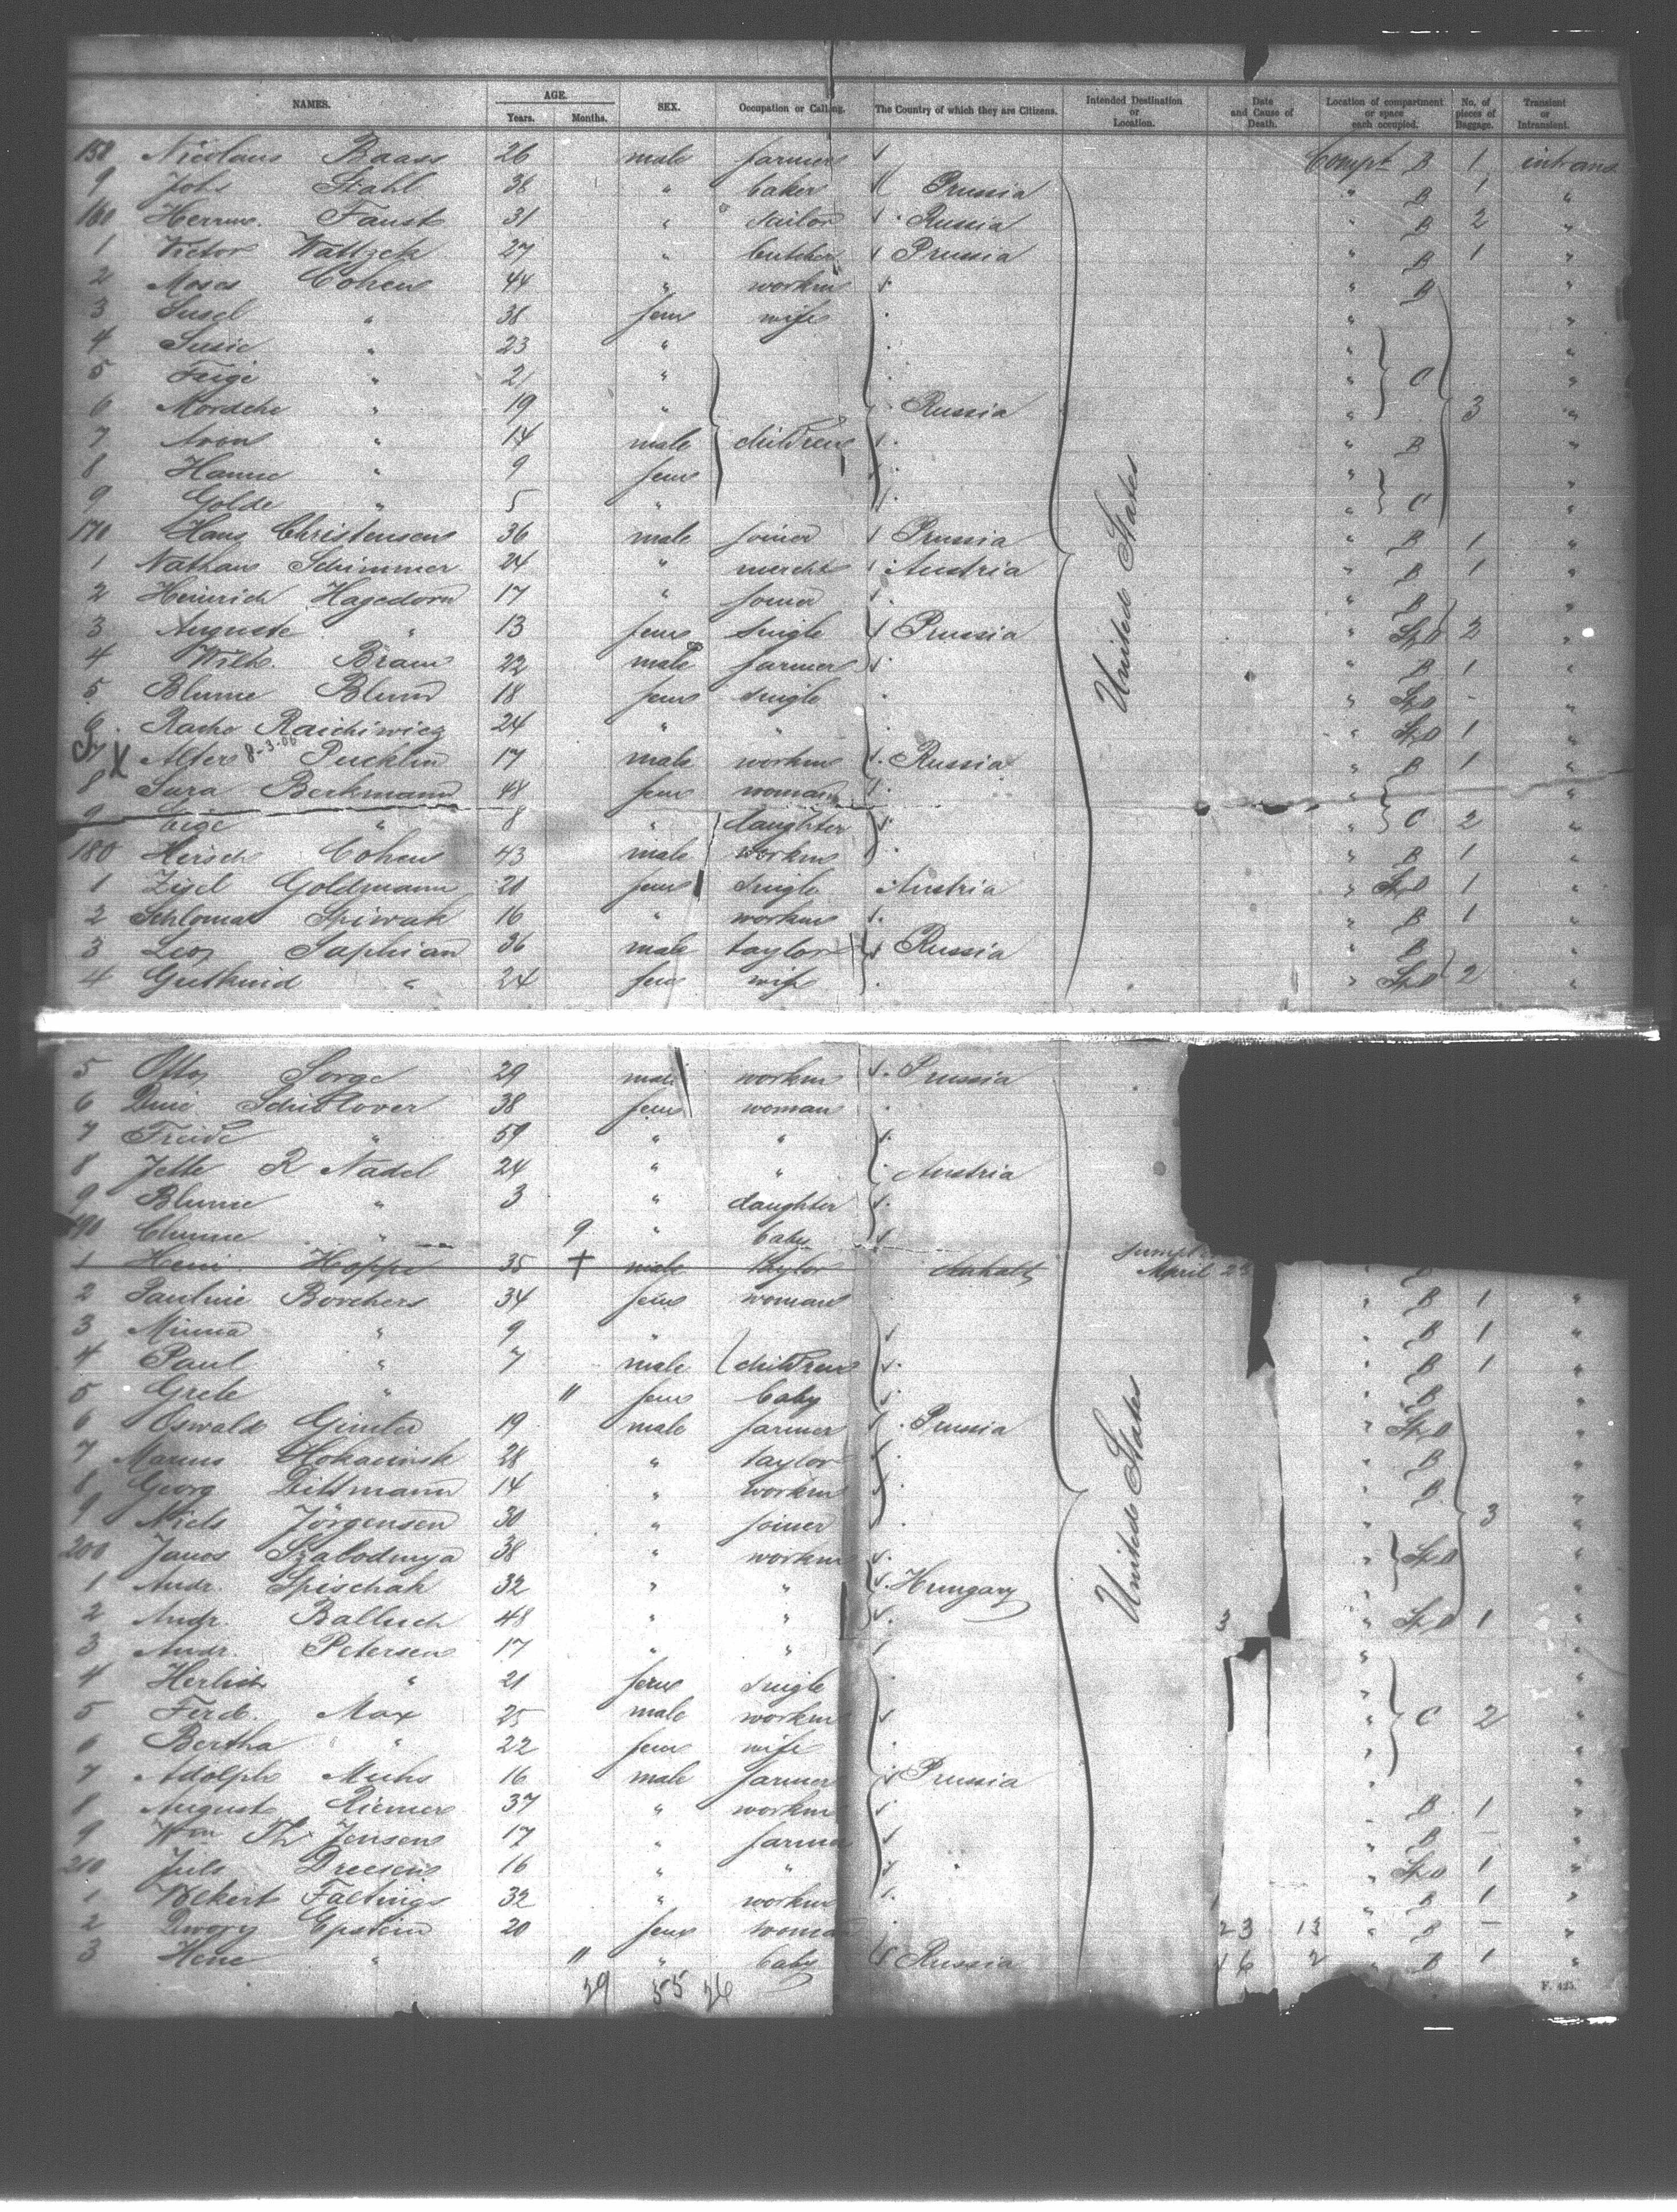 NAMES. AGE. Years. Months. SEX. Occupation or Calling. The Country of which they are Citizens. Intended Destination or Location. Date and Cause of Death. Location of compartment or space each occupied. No. of pieces of Baggage. Transient or Intransient.
158 Nicolaus Baass 26 male farmer Compt B 1 intrans
9 Johs Stahl 36 " baker Prussia " B 1 "
160 Herrm. Faust 31 " sailor Russia " B 2 "
1 Victor 27 " butcher Prussia " B 1 "
2 Moses Cohen 44 " workm " B "
3 Susel " 38 fem wife " "
4 Susie " 23 " " "
5 Feige " 21 " " C "
6 Mordche " 19 " Russia " 3 "
7 Aron " 14 male children " B "
8 Hanne " 9 fem " "
9 Golde " 5 " " C "
170 Hans Christensen 36 male joiner Prussia " B 1 "
1 Nathan Schimmer 24 " mercht Austria " B 1 "
2 Heinrich Hagedorn 17 " joiner " B "
3 Auguste " 13 fem single Prussia " Sp D 2 "
4 Wilh. Bram 22 male farmer " B 1 "
5 Blume Blum 18 fem single " Sp D - "
6 Rache 24 " " " Sp D 1 "
7 X Alter 8-3-06 Pucklin 17 male workm Russia " B 1 "
8 Sara Berkmann 48 fem woman " "
9 " 8 " daughter " C 2 "
180 Hersch Cohen 43 male workm " B 1 "
1 Zisel Goldmann 20 fem single Austria " Sp D 1 "
2 Schloma Spiwak 16 " workm " B 1 "
3 Leo Saphian 36 male taylor Russia " B
4 Gutkind " 24 fem wife " Sp D 2 "
United States
5 Otto Sorge 29 male workm Prussia
6 38 fem woman
7 Freide " 59 " "
8 Jette R Nadel 24 " " Austria
9 Blume " 3 " daughter
190 " 9 " baby
1 Hoppe 35 † male taylor Anhalt April
2 Pauline Borchers 34 fem woman " B 1 "
3 Minna " 9 " " B 1 "
4 Paul " 7 male children " B 1 "
5 Grete " 11 fem baby " B "
6 Oswald 19 male farmer Prussia " Sp D "
7 28 " taylor " B "
8 Georg Dittmann 14 " workm " B "
9 Niels Jörgensen 30 " joiner 3 "
200 Janos 38 " workm " Sp D "
1 Andr. Spischak 32 " " Hungary "
2 Andr. Balluch 48 " " 3 " Sp D 1 "
3 Andr. Petersen 17 " " " "
4 " 21 fem single " "
5 Ferd. Max 25 male workm " C 2 "
6 Bertha " 22 fem wife " "
7 Adolph Muhs 16 male farmer Prussia " "
8 August Riemer 37 " workm " B 1 "
9 Wm Th Jensen 17 " farmer " B - "
210 Juls Dreesen 16 " " " " Sp D 1 "
1 Faltings 32 " workm 1 " B 1 "
2 Epstein 20 fem woman 23 13 " B - "
3 Hene " 11 " baby Russia 16 2 " B 1 "
United States
29 55 26
F. 425.